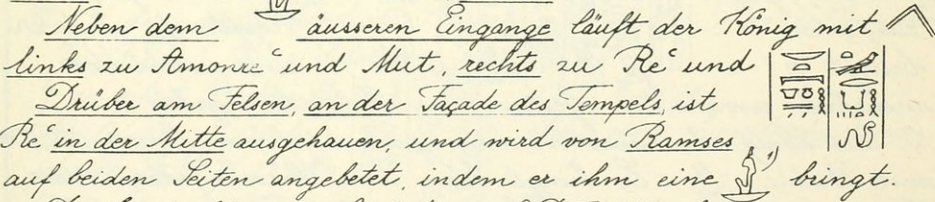 Neben dem äusseren Eingange läuft der König mit
links zu Amonreʿ und Mut, rechts zu Reʿ und
Drüber am Felsen, an der Façade des Tempels, ist
Reʿ in der Mitte ausgehauen, und wird von Ramses
auf beiden Seiten angebetet, indem er ihm eine bringt.